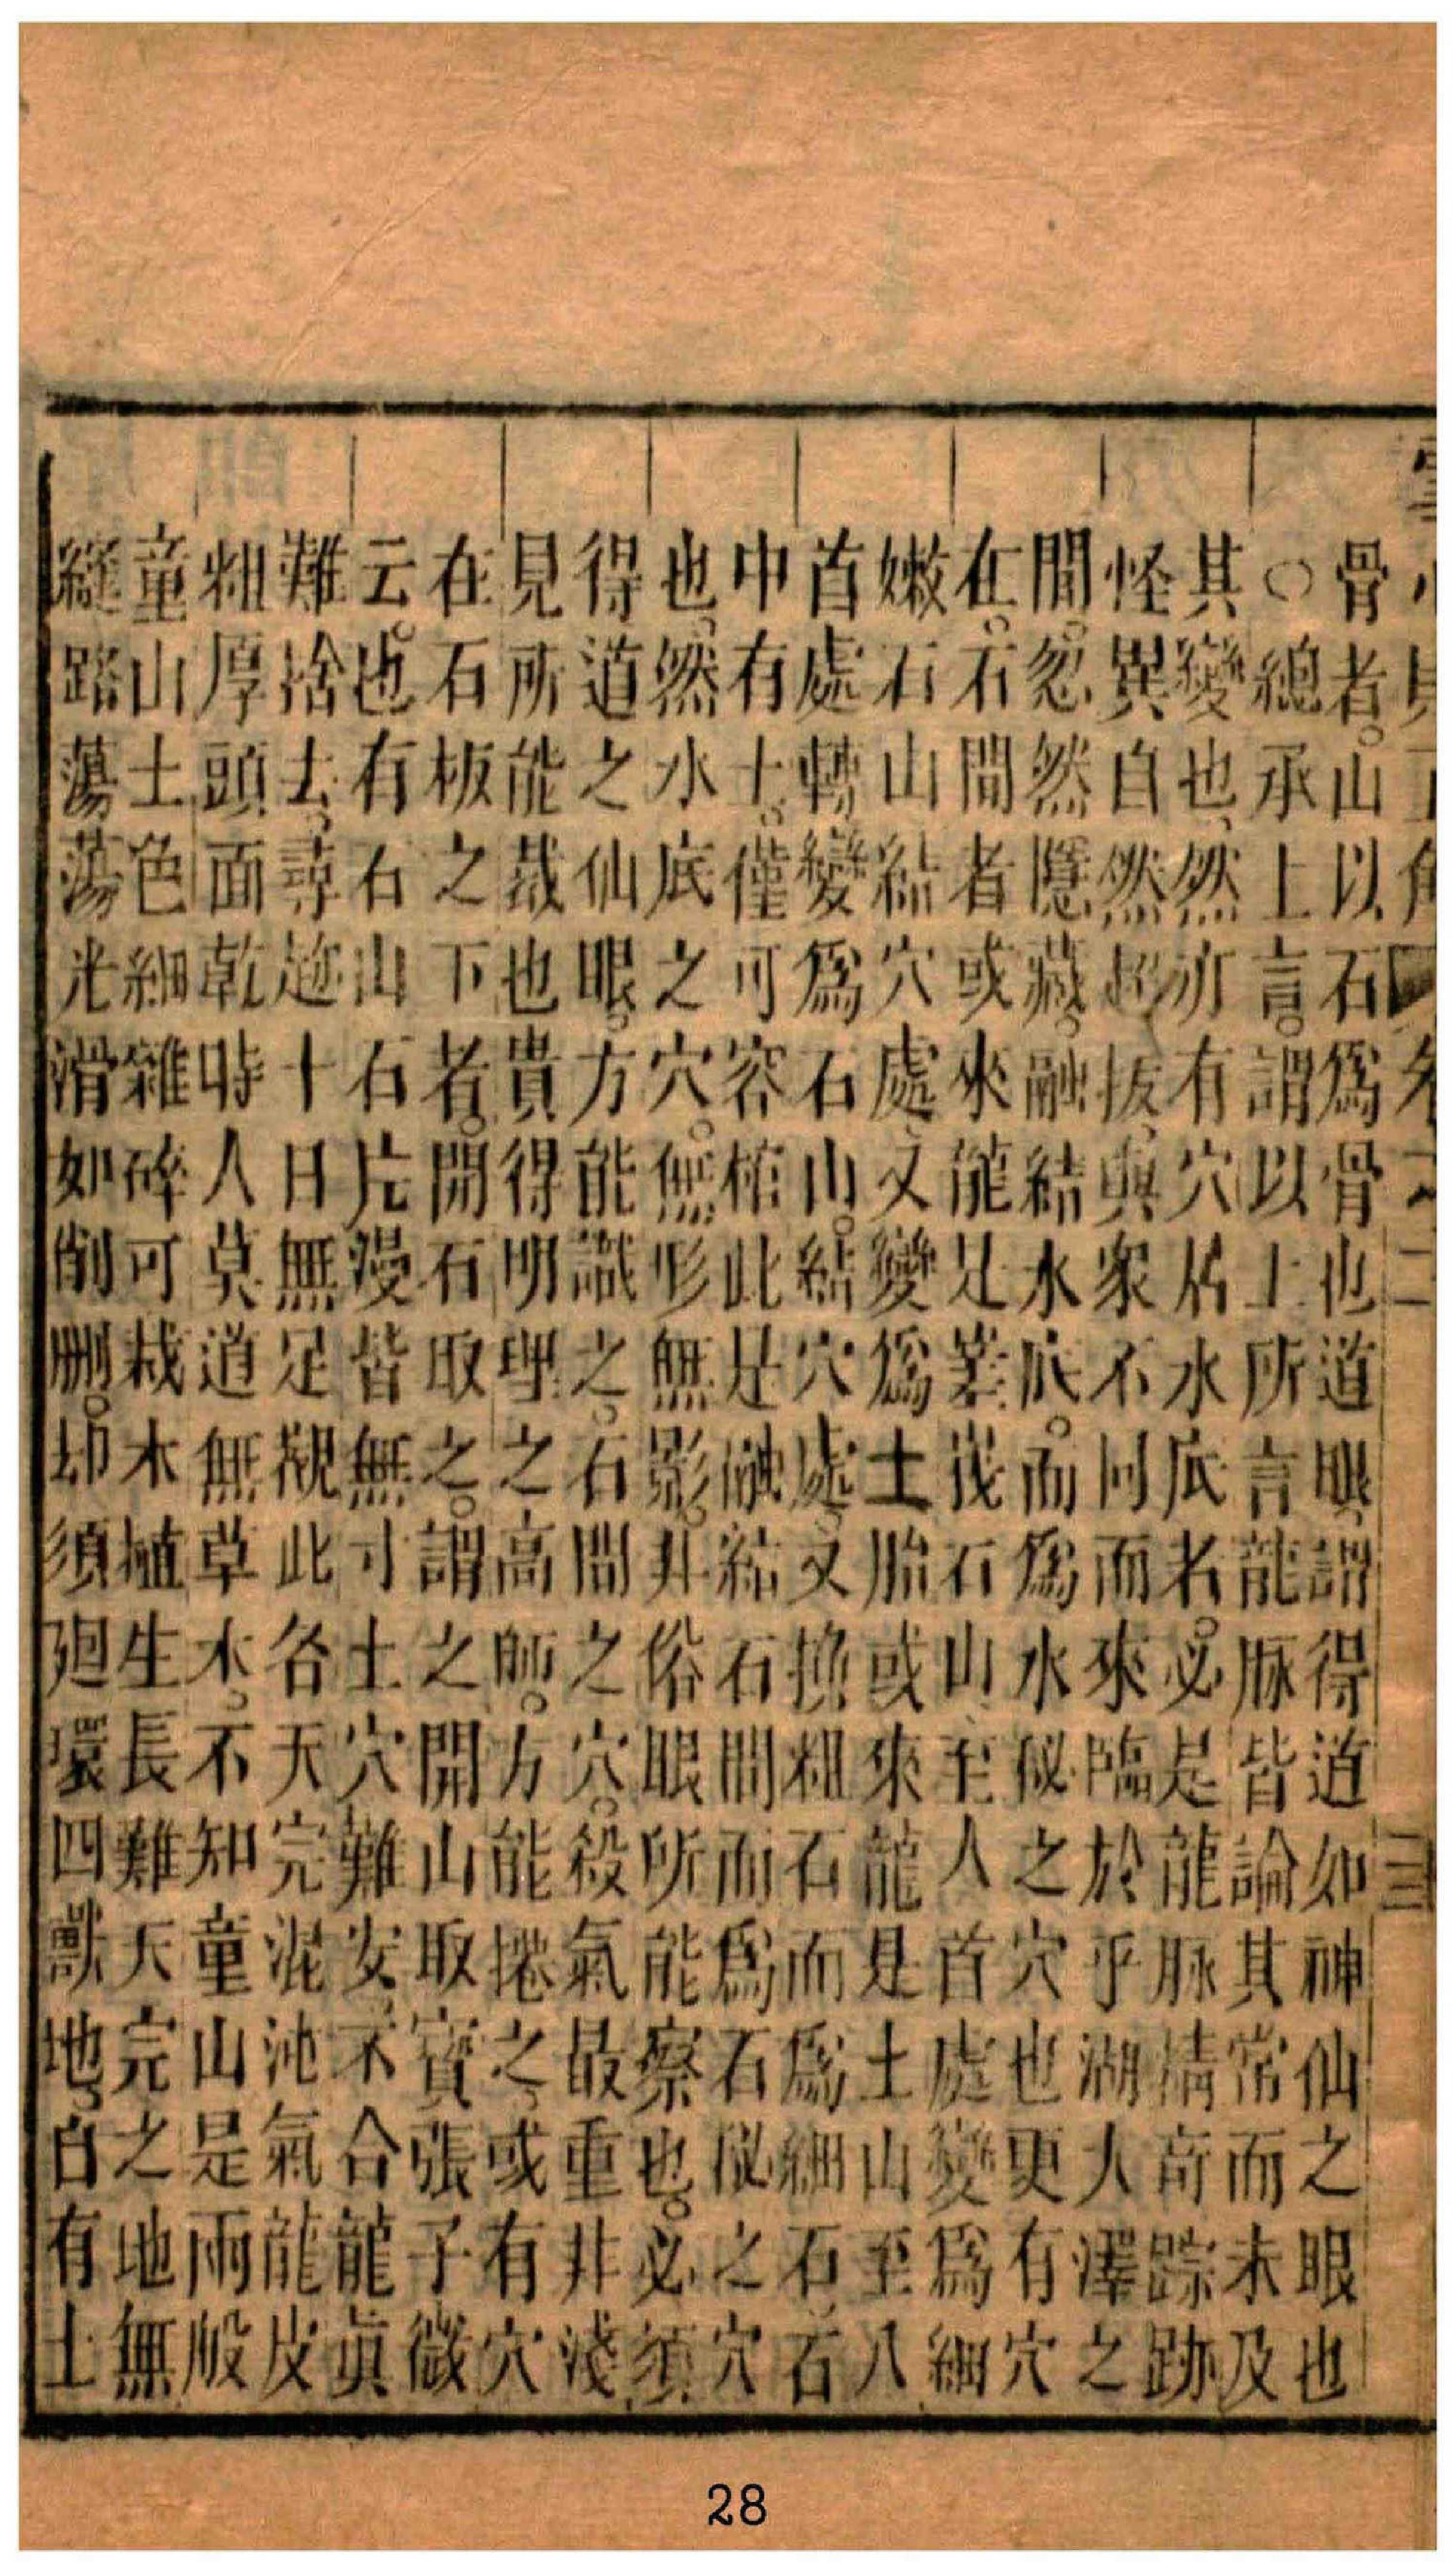 三
骨者山以石爲骨也道眼謂得道如神仙之眼也
○總承上言謂以上所言龍脉皆論其常而未及
其變也然亦有穴居水底者必是龍脉情奇踪跡
怪異自然超拔與衆不同而來臨於乎湖大澤之
間忽然隱藏融結水底而爲水秘之穴也更有穴
在石間者或來龍是巉峩石山至人首處變爲細
嫩石山結穴處又變爲土胎或來龍是土山至八
首處轉變爲石山結穴處又換粗石而爲細石石
中有土僅可容棺此是融結石間而爲石秘之穴
也然水底之穴無形無影非俗眼所能察也必須
得道之仙眼方能識之石間之穴殺氣最重非淺
見所能裁也貴得明理之高師方能捲之或有穴
在石板之下者開石取之謂之開山取寶張子微
云也有石山石片漫皆無寸土穴難安不合龍眞
難捨去尋趂十日無足觀此各天完混沌氣龍皮
粗厚頭面乾時人莫道無草木不知童山是兩般
童山土色細雜碎可栽木植生長難天完之地無
縫路蕩蕩光滑如削刪却須廻環四獸地自有土
28